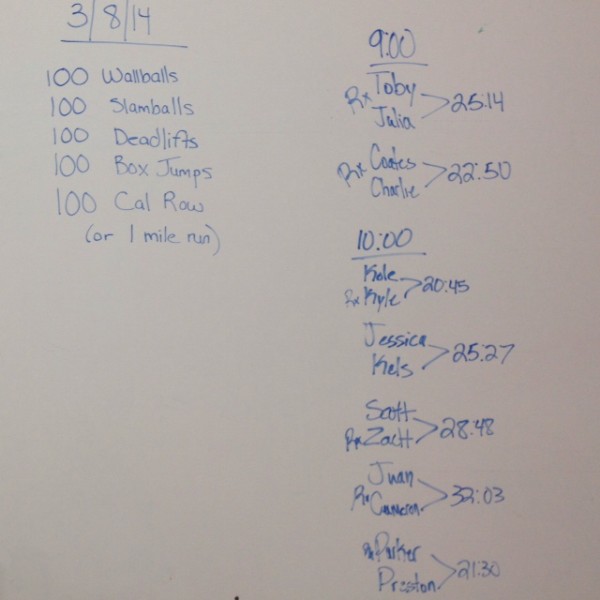 3/8/14
100 Wallballs
100 Slamballs
100 Deadlifts
100 Box Jumps
100 Cal Row
(or 1 mile run)
9:00
Rx Toby
Julia 25:14
Rx Coates
Charlie 22:50
10:00
Kole
Rx Kyle 20:45
Jessica
Kels 25:27
Scott
Rx Zach 28:48
Juan
Rx Cameron 32:03
Rx Parker
Preston 21:30